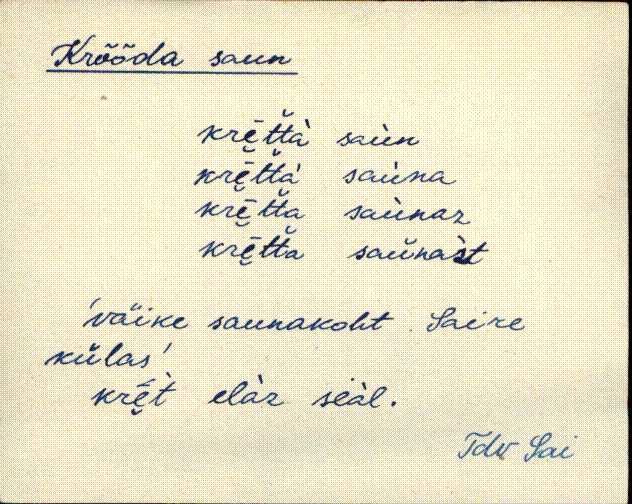 Krõõda saun
krē̮t̆t̆à saùn
krē̮t̆t̆à saùna
krē̮t̆t̆a saùnaz
krē̮t̆t̆a saŭnàst
'väike saunakoht Saire
külas'
krḕ̮t elàz sèàl.
Tdv Sai